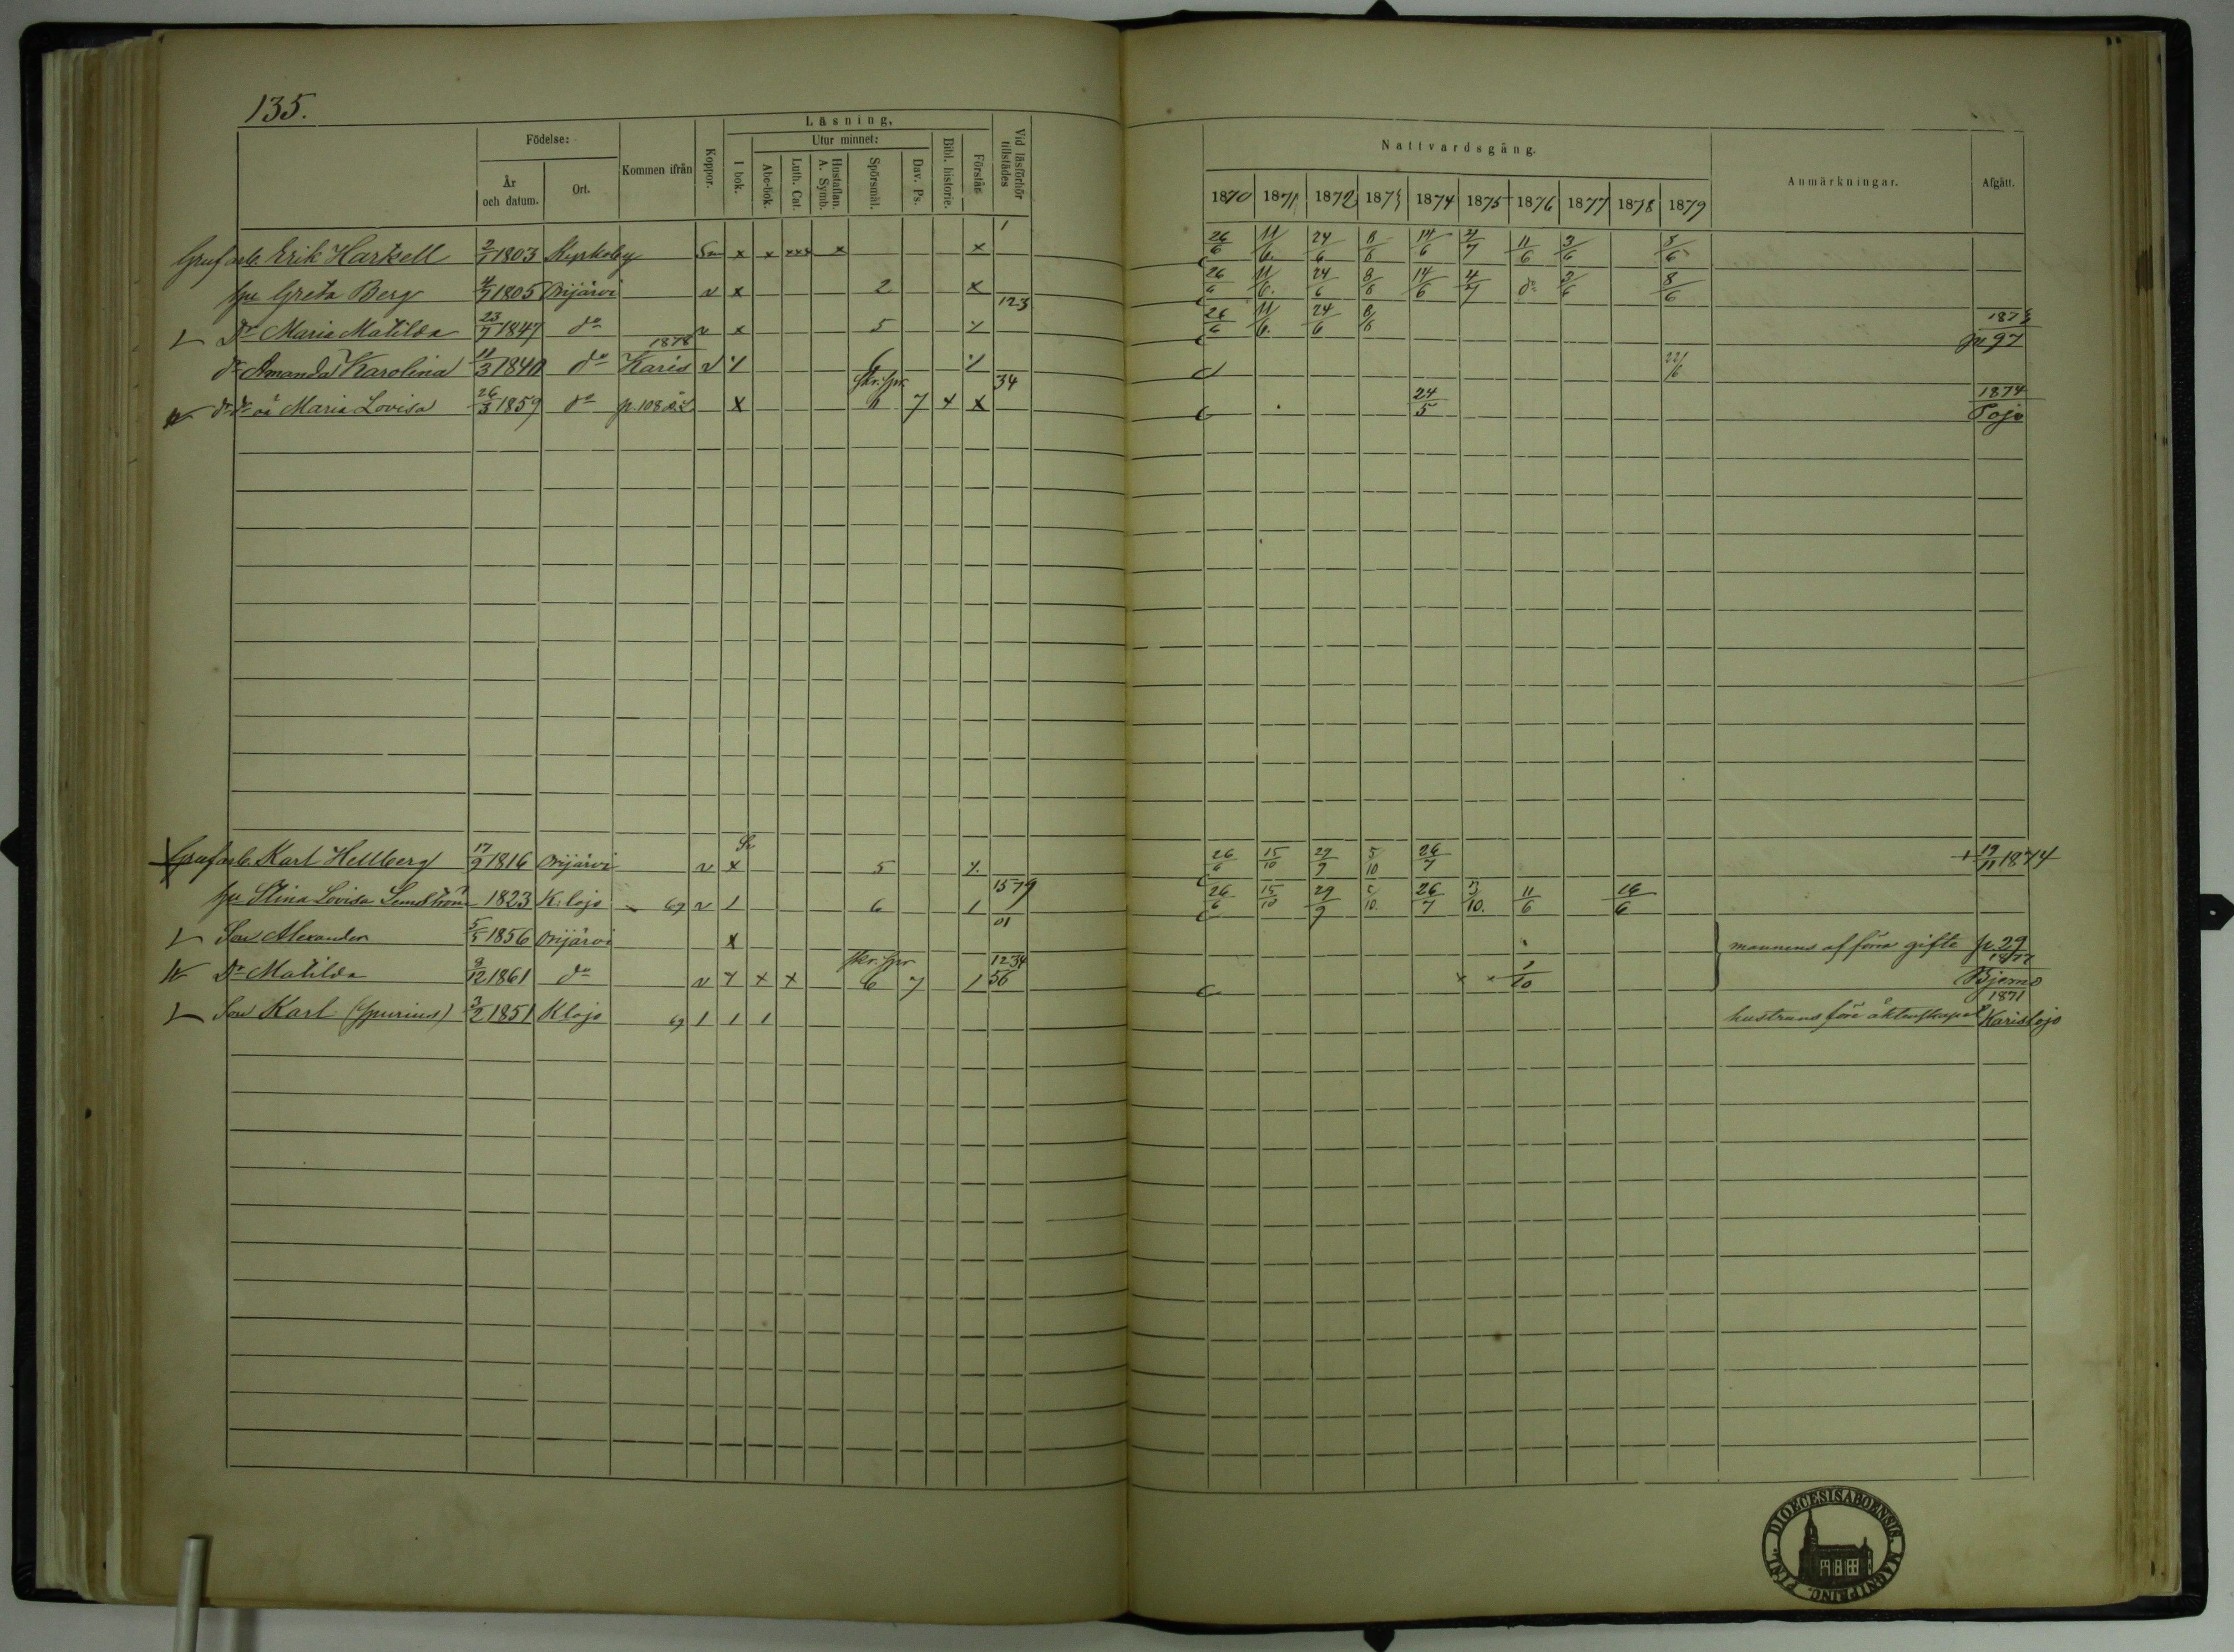 135.
Födelse:
År och datum.
Ort.
Kommen ifrån
Koppor.
Läsning,
I bok.
Utur minnet:
Abc-bok.
Luth. Cat.
Hustaflan. A. Symb.
Spörsmål.
Dav. Ps.
Bibl. historie.
Förstår
Vid läsförhör tillstädes
Nattvardsgång.
1870 1871 1872 1873 1874 1875 1876 1877 1878 1879
Anmärkningar.
Afgått.
Grufarb. Erik Harkell 2/7 1803 x x xxx x x 1 26/6 11/6 24/6 8/6 14/6 4/7 11/6 3/6 8/6
hu Greta Berg 4/7 1805 Orijärvi v x 2 x 26/6 11/6. 24/6 8/6 14/6 4/7 do 3/6 8/6
Dr Maria Matilda 23/7 1847 do v x 5 123 26/6 11/6. 24/6 8/6 1873 p 97
dr Amanda Karolina 11/3 1840 do 1878 Karis v 22/6
dr dr oä Maria Lovisa 26/3 1859 do p. 108 skr. spr. 6 7 x x 34 24/5 1874 Pojo
Grufarb. Karl Hellberg 17/9 1816 Orijärvi v x 5 26/6 15/10 29/9 5/10 26/7 + 19/11 1874
hu Stina Lovisa 1823 K: lojo 69 v 1 6 1 1579 26/6 15/10 29/9 5/10. 26/7 3/10. 11/6 16/6
Son Alexander 5/5 1856 Orijärvi x 01 mannens af förra gifte p. 29
Dr Matilda 9/12 1861 do v x x skr. spr 6 7 1 1234 56 x x 1/10 1877 Bjerno
Son Karl (spurius) 3/2 1851 Klojo 69 1 1 1 hustruns före äktenskapet 1871 Karislojo
DIOECESIS ABOENSIS. MAGNI PRINC. FINL.